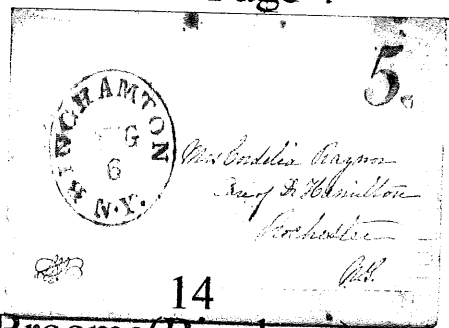 5.
BINGHAMTON
AUG
6
N.Y.
Mrs Cordelia Raynor
Care of Dr Hamilton
Rochester
N.Y.
14